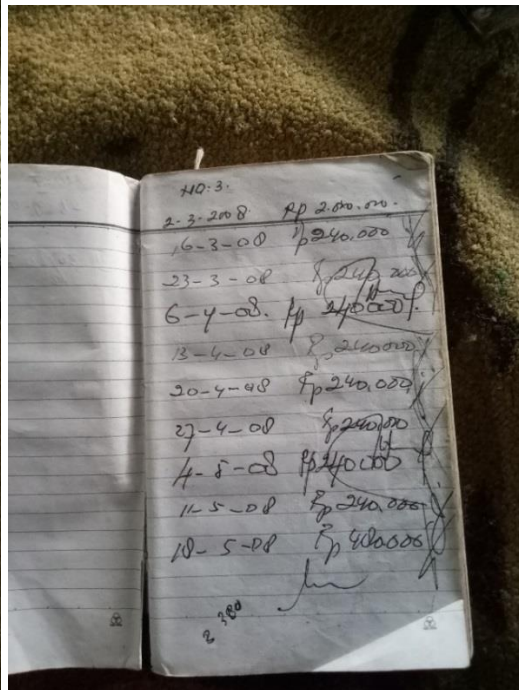 NO: 3.
2-3-2008 Rp 2.000.000.-
16-3-08 Rp 240.000
23-3-08 Rp 240.000
6-4-08. Rp 240.000
13-4-08 Rp 240.000
20-4-08 Rp 240.000
27-4-08 Rp 240.000
4-5-08 Rp 240.000
11-5-08 Rp 240.000
18-5-08 Rp 480.000